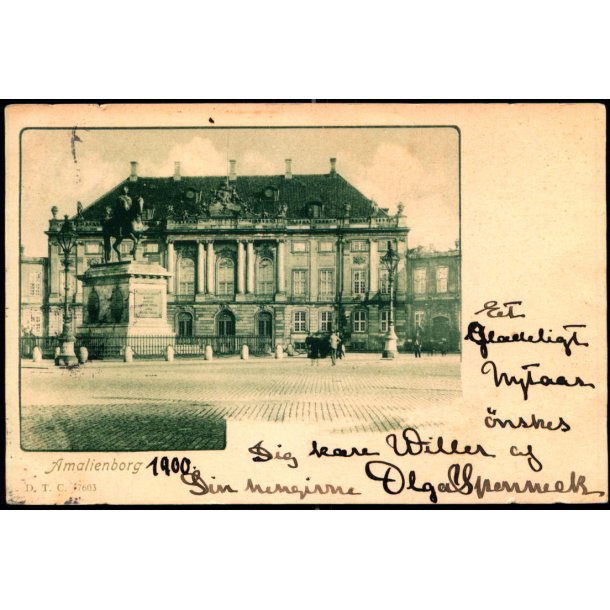 Et
Gladeligt
Nytaar
önskes
Dig kære Willer af
Din hengivne Olga Spenneck
Amalienborg 1900
D. T. C. 7603